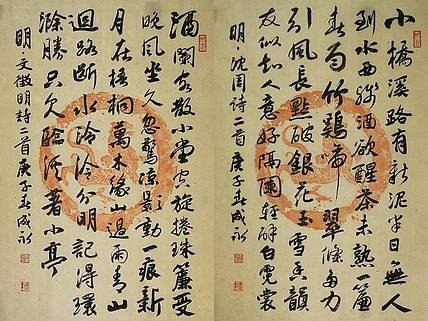 小橋溪路有新泥半日無人
到水西殘酒欲醒茶未熟一簾
春雨竹雞啼翠條多力
引風長點破銀花玉雪香韻
友似知人意好隔闌輕解白霓裳
明沈周詩二首庚子春成永
酒闌客散小堂空旋捲珠簾受
晚風坐久忽驚涼影動一痕新
月在梧桐萬木緣山過雨青山
迴路斷水泠泠分明記得環
滁勝只欠臨溪著小亭
明文徵明詩二首庚子春成永